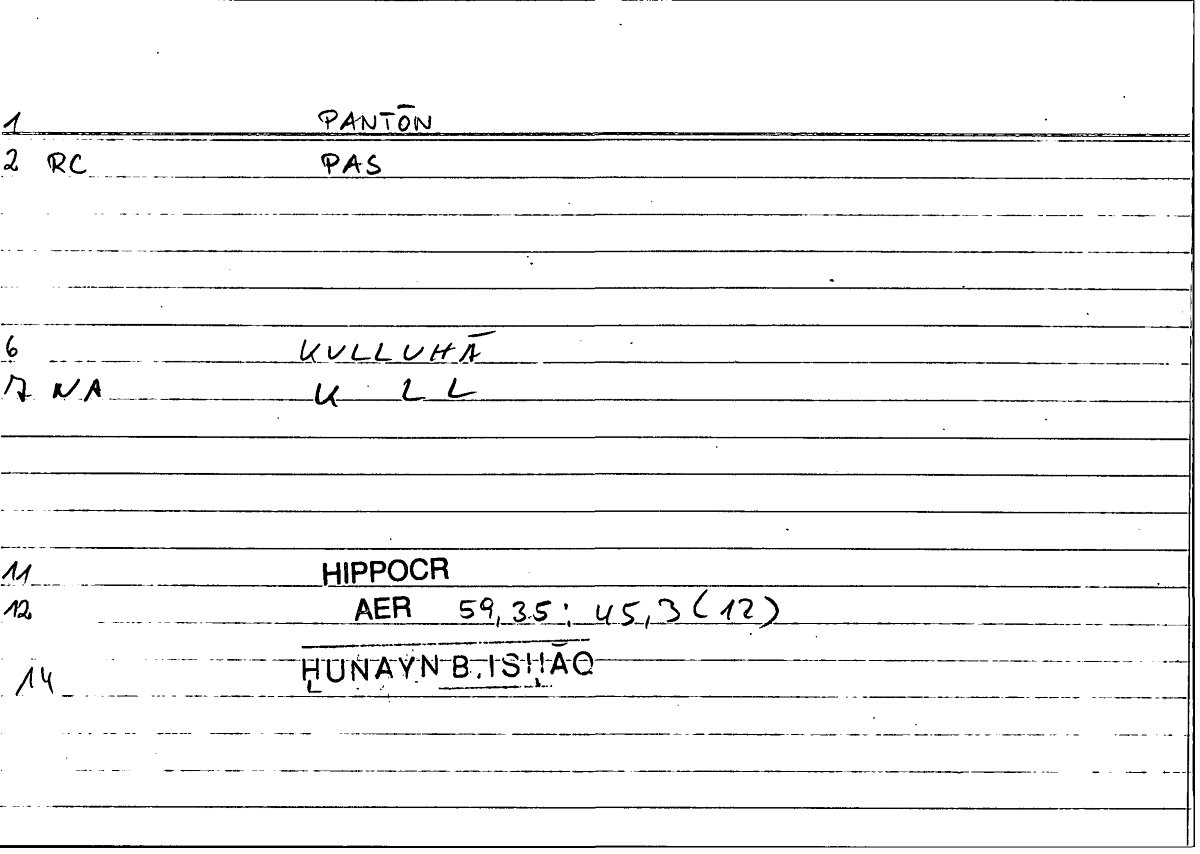 1 PANTŌN
2 RC PAS
6 KULLUHĀ
7 NA K LL
11 HIPPOCR
12 AER 59,35; 45,3 (12)
14 ḤUNAYN B. ISḤĀQ